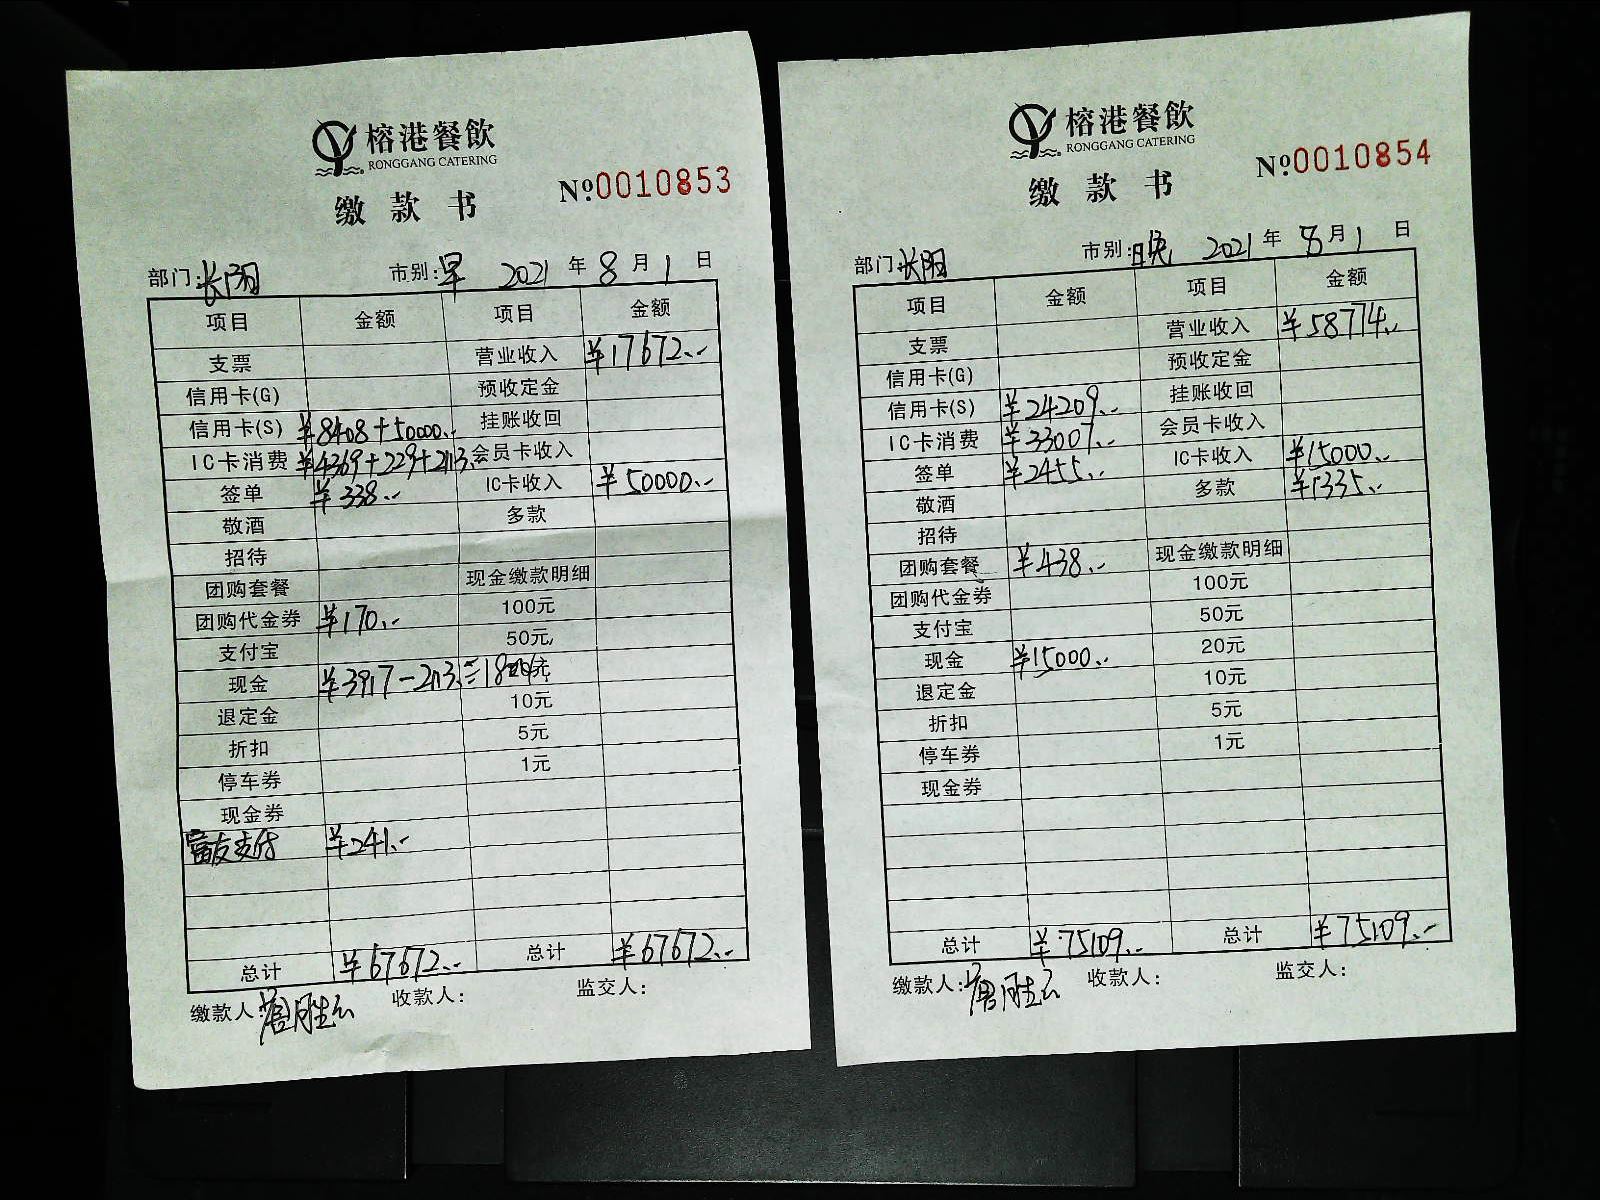 榕港餐飲
RONGGANG CATERING
缴款书
№0010853
部门:长阳 市别:早 2021年8月1日
项目 金额 项目 金额
支票 营业收入 ¥17672.-
信用卡(G) 预收定金
信用卡(S) ¥8408+50000.- 挂账收回
IC卡消费 ¥4369+229+2113.- 会员卡收入
签单 ¥338.- IC卡收入 ¥50000.-
敬酒 多款
招待
团购套餐 现金缴款明细
团购代金券 ¥170.- 100元
支付宝 50元
现金 ¥3917-2113.=1804
退定金 10元
折扣 5元
停车券 1元
现金券
富友支付 ¥241.-
总计 ¥67672.- 总计 ¥67672.-
缴款人:唐胜云 收款人: 监交人:
榕港餐飲
RONGGANG CATERING
缴款书
№0010854
部门:长阳 市别:晚 2021年8月1日
项目 金额 项目 金额
支票 营业收入 ¥58774.-
信用卡(G) 预收定金
信用卡(S) ¥24209.- 挂账收回
IC卡消费 ¥33007.- 会员卡收入
签单 ¥2455.- IC卡收入 ¥15000.-
敬酒 多款 ¥1335.-
招待
团购套餐 ¥438.- 现金缴款明细
团购代金券 100元
支付宝 50元
现金 ¥15000.- 20元
退定金 10元
折扣 5元
停车券 1元
现金券
总计 ¥75109.- 总计 ¥75109.-
缴款人:唐胜云 收款人: 监交人: